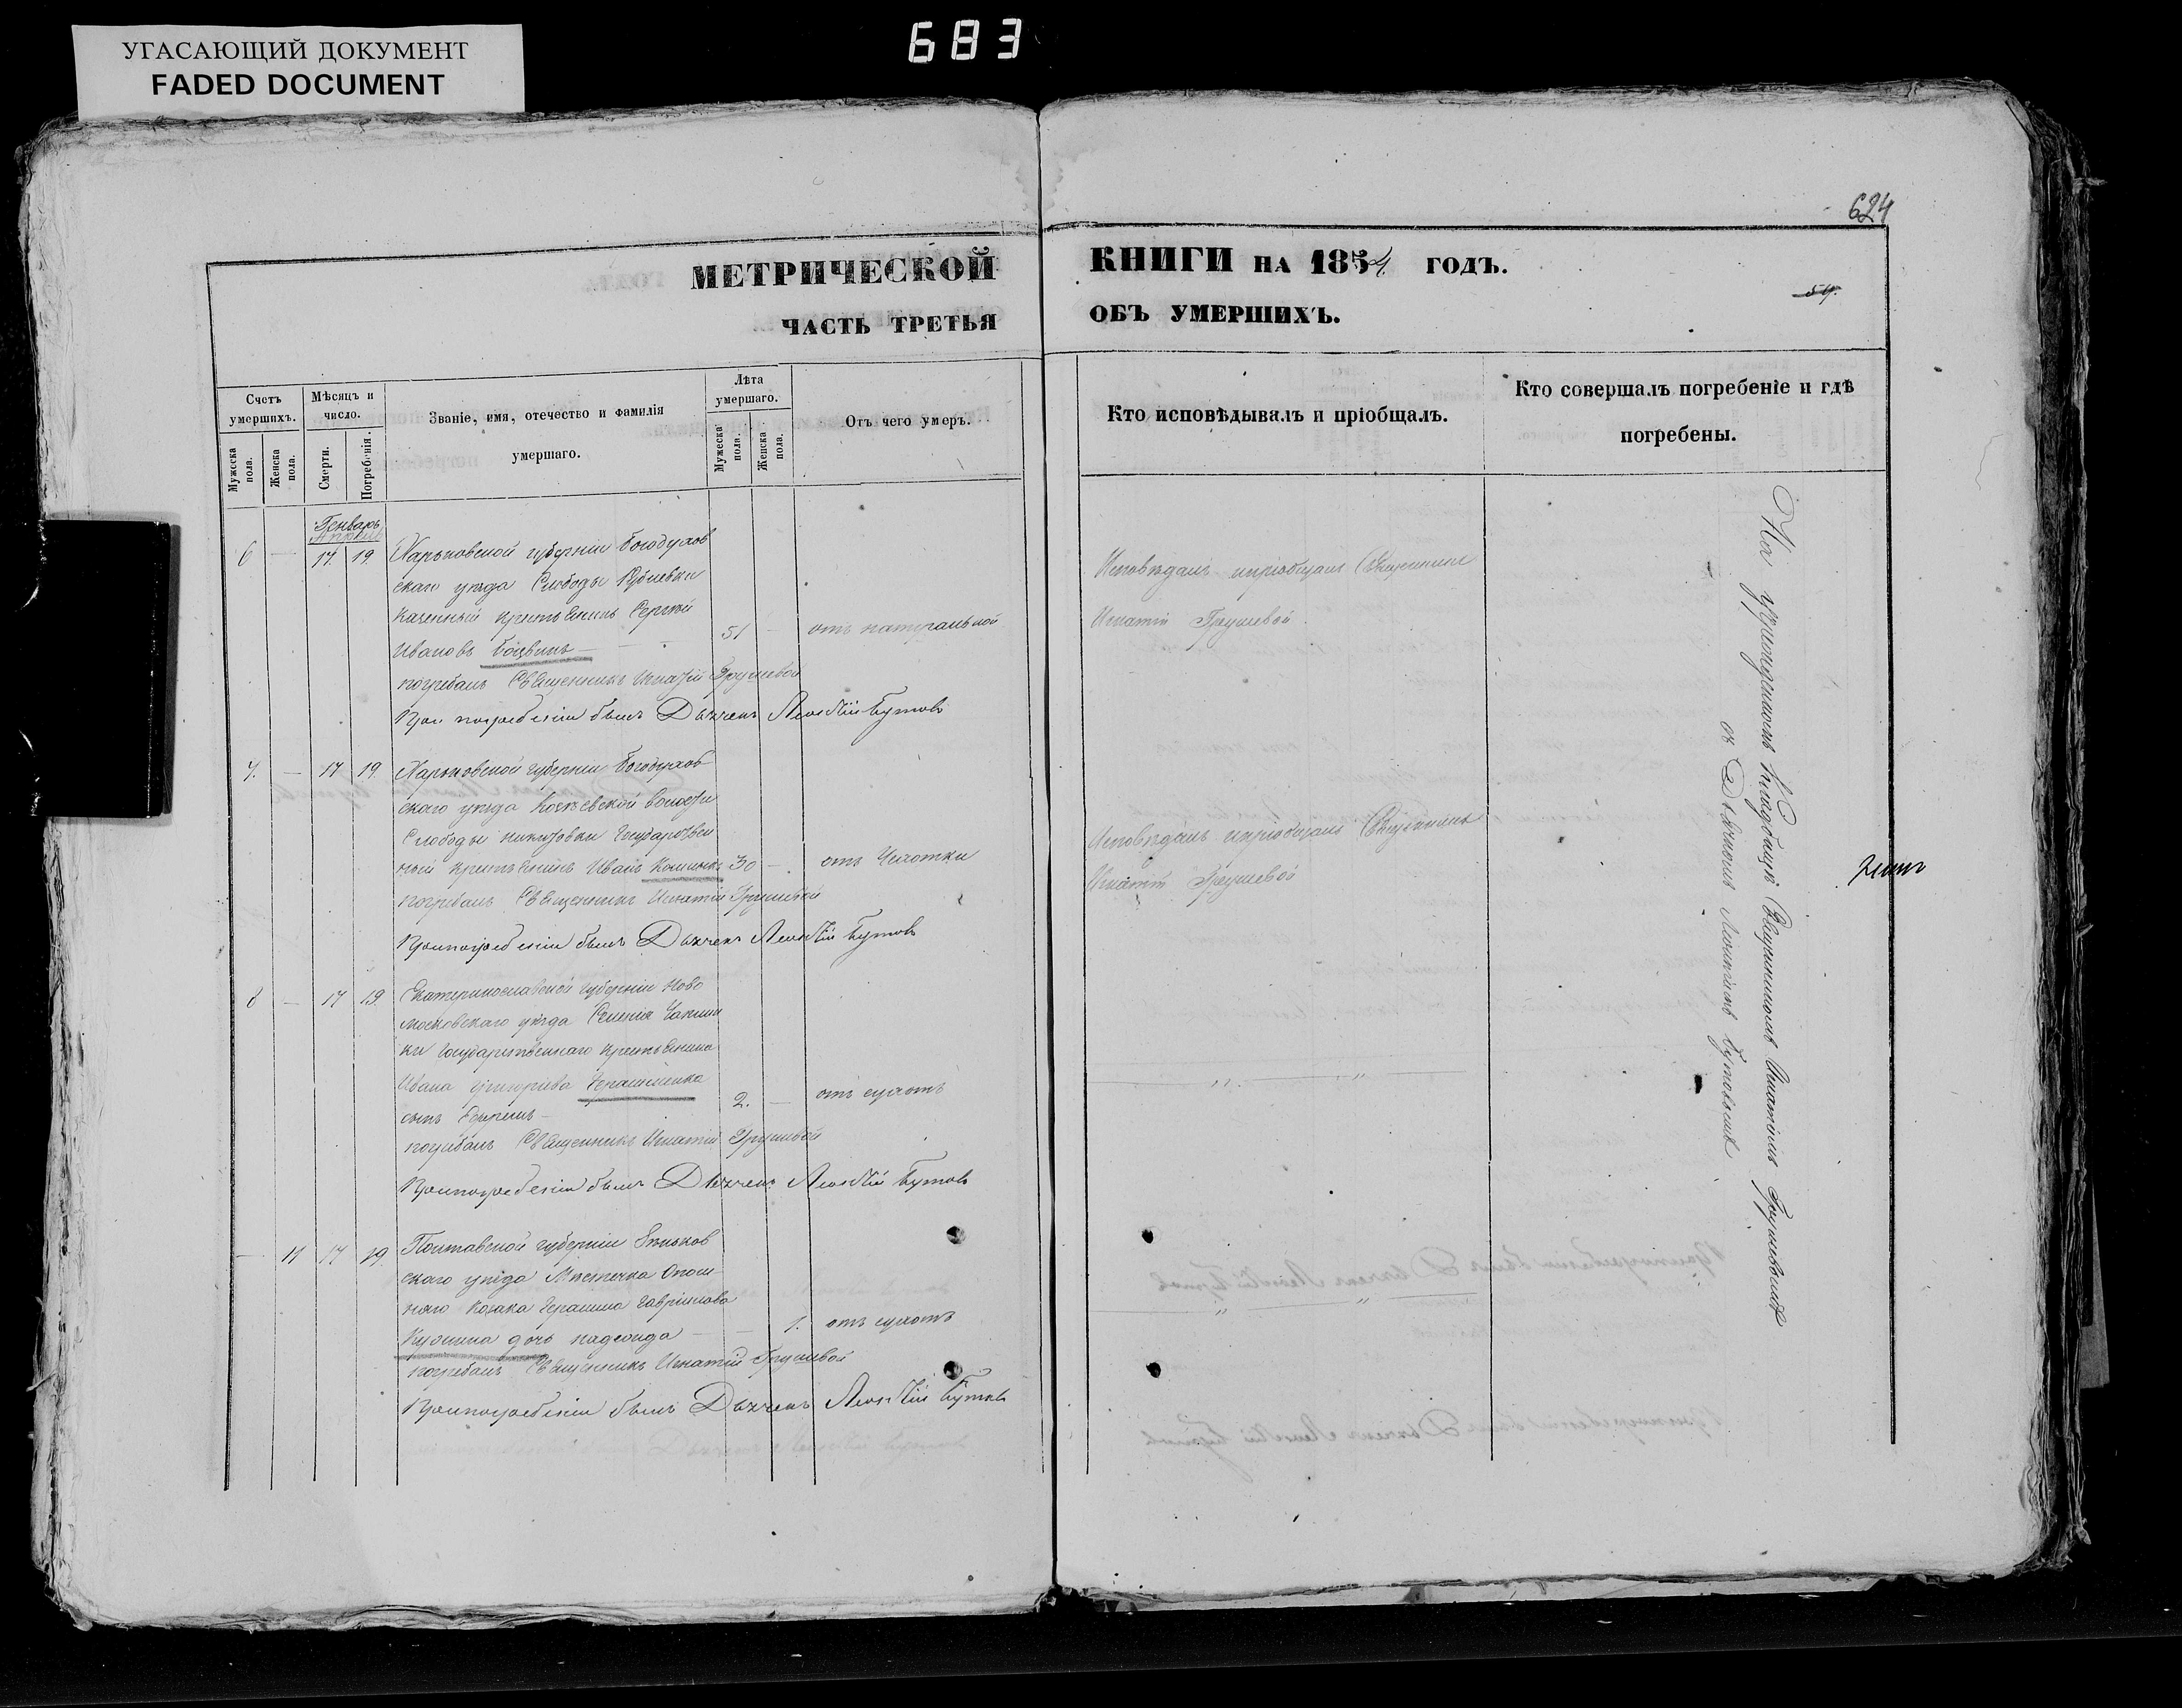 УГАСАЮЩИЙ ДОКУМЕНТ
FADED DOCUMENT
683
624
МЕТРИЧЕСКОЙ КНИГИ НА 1854 ГОДЪ.
ЧАСТЬ ТРЕТЬЯ ОБЪ УМЕРШИХЪ.
54.
Счетъ умершихъ.
Мужеска пола.
Женска пола.
Мѣсяцъ и число.
Смерти.
Погребенія.
Званіе, имя, отечество и фамилія
умершаго.
Лѣта умершаго.
Мужеска пола.
Женска пола.
Отъ чего умеръ.
Кто исповѣдывалъ и пріобщалъ.
Кто совершалъ погребеніе и гдѣ
погребены.
Генварь
6 — 17. 19. Харьковской губерніи богодухов
скаго уѣзда Слободы
казенный крестьянинъ Сергѣй
Ивановъ 51 —
погребалъ Священникъ Игнатій Грушевой
При погребеніи былъ Дьячекъ Леонтій Бутовъ
Исповѣдалъ ипріобщалъ Священникъ
Игнатій Грушевой.
7. — 17 19. Харьковской губерніи богодухов
скаго уѣзда волости
Слободы Государствен
ный крестьянинъ Иванъ 30 — отъ Чахотки
погребалъ Священникъ Игнатій Грушевой
Припогребеніи былъ Дьячекъ Леонтій Бутовъ
Исповѣдалъ ипріобщалъ Священникъ
Игнатій Грушевой
8 — 17 19. Екатеринославской губерніи Ново
московскаго уѣзда Селенія
ки Государственнаго крестьянина
Ивана Григорьева
сынъ 2. — отъ сухотъ
погребалъ Священникъ Игнатій Грушевой
Припогребеніи былъ Дьячекъ Леонтій Бутовъ
— 11 17 19. Полтавской губерніи Зѣньков
скаго уѣзда Мѣстечка Опош
наго Козака Герасима Гаврилова
дочь надежда — 1. отъ сухотъ
погребалъ Священникъ Игнатій Грушевой
Припогребеніи былъ Дьячекъ Леонтій Бутовъ
На учрежденномъ Кладбищѣ Священникомъ Игнатіемъ Грушевымъ
съ Дьячкомъ Леонтіемъ Бутовымъ